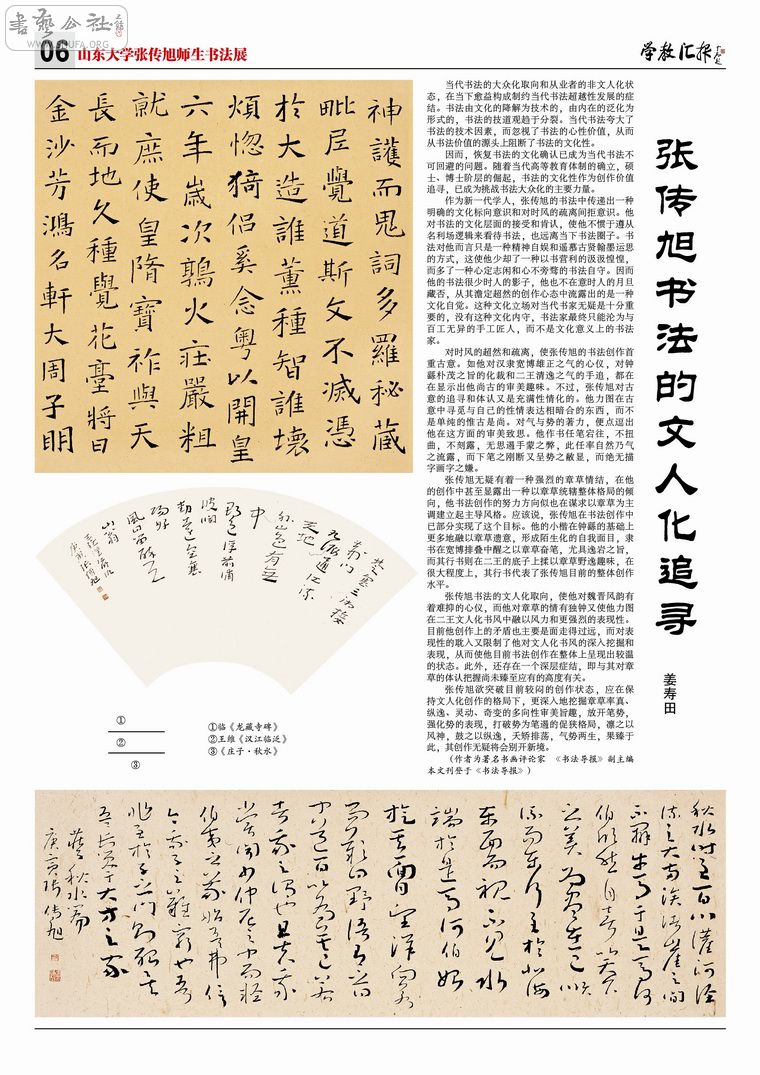 書藝公社
WWW.SHUFA.ORG
06 山东大学张传旭师生书法展
学教汇报
神護而鬼詞多羅秘蔵
毗尼覺道斯文不滅憑
於大造誰薰種智誰壞
煩惚猗侶奚念粵以開皇
六年歲次鶉火莊嚴粗
就庶使皇隋寶祚與天
長而地久種覺花臺將日
金沙芳鴻名軒大周子明
楚塞三湘接
荆门
九派通江流
天地
外山色有无
中
郡邑浮前浦
波澜
动远空襄
阳好
风日留醉与
山翁
①
②
③
①临《龙藏寺碑》
②王维《汉江临泛》
③《庄子·秋水》
张传旭书法的文人化追寻
姜寿田
当代书法的大众化取向和从业者的非文人化状
态，在当下愈益构成制约当代书法超越性发展的症
结。书法由文化的降解为技术的，由内在的泛化为
形式的，书法的技道观趋于分裂。当代书法夸大了
书法的技术因素，而忽视了书法的心性价值，从而
从书法价值的源头上阻断了书法的文化性。
因而，恢复书法的文化确认已成为当代书法不
可回避的问题。随着当代高等教育体制的确立，硕
士、博士阶层的倔起，书法的文化性作为创作价值
追寻，已成为挑战书法大众化的主要力量。
作为新一代学人，张传旭的书法中传递出一种
明确的文化标向意识和对时风的疏离间拒意识。他
对书法的文化层面的接受和肯认，使他不惯于遵从
名利场逻辑来看待书法，也远离当下书法圈子。书
法对他而言只是一种精神自娱和遥慕古贤翰墨运思
的方式，这使他少却了一种以书营利的汲汲惶惶，
而多了一种心定志闲和心不旁骛的书法自守。因而
他的书法很少时人的影子，他也不在意时人的月旦
藏否，从其澹定超然的创作心态中流露出的是一种
文化自觉。这种文化立场对当代书家无疑是十分重
要的，没有这种文化内守，书法家最终只能沦为与
百工无异的手工匠人，而不是文化意义上的书法
家。
对时风的超然和疏离，使张传旭的书法创作首
重古意。如他对汉隶宽博雄正之气的心仪，对钟
繇朴茂之旨的化裁和二王清逸之气的手追，都在
在显示出他尚古的审美趣味。不过，张传旭对古
意的追寻和体认又是充满性情化的。他力图在古
意中寻觅与自己的性情表达相暗合的东西，而不
是单纯的惟古是尚。对气与势的著力，便点逗出
他在这方面的审美致思。他作书任笔宕往，不扭
曲，不刻露，无思遏手蒙之弊，此任率自然乃气
之流露，而下笔之刚断又呈势之敝显，而绝无描
字画字之嫌。
张传旭无疑有着一种强烈的章草情结，在他
的创作中甚至显露出一种以章草统辖整体格局的倾
向，他书法创作的努力方向似也在谋求以章草为主
调建立起主导风格。应该说，张传旭在书法创作中
已部分实现了这个目标。他的小楷在钟繇的基础上
更多地融以章草遗意，形成陌生化的自我面目，隶
书在宽博排叠中醒之以章草奋笔，尤具逸宕之旨，
而其行书则在二王的底子上揉以章草野逸趣味，在
很大程度上，其行书代表了张传旭目前的整体创作
水平。
张传旭书法的文人化取向，使他对魏晋风韵有
着难抑的心仪，而他对章草的情有独钟又使他力图
在二王文人化书风中融以风力和更强烈的表现性。
目前他创作上的矛盾也主要是面走得过远，而对表
现性的耽入又限制了他对文人化书风的深入挖掘和
表现，从而使他目前书法创作在整体上呈现出较温
的状态。此外，还存在一个深层症结，即与其对章
草的体认把握尚未臻至应有的高度有关。
张传旭欲突破目前较闷的创作状态，应在保
持文人化创作的格局下，更深入地挖掘章草率真、
纵逸、灵动、奇变的多向性审美旨趣，放开笔势，
强化势的表现，打破势为笔遏的促狭格局，凛之以
风神，鼓之以纵逸，夭矫排荡，气势两生，果臻于
此，其创作无疑将会别开新境。
（作者为著名书画评论家 《书法导报》副主编
本文刊登于《书法导报》）
秋水时至百川灌河泾
流之大两涘渚崖之间
不辩牛马于是焉河
伯欣然自喜以天下
之美为尽在己顺
流而东行至于北海
东面而视不见水
端于是焉河伯始
旋其面目望洋向若
而叹曰野语有之曰